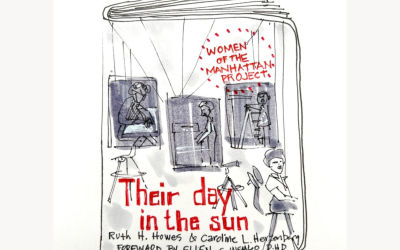 WOMEN
OF THE
MANHATTAN
PROJECT
Their day
in the sun
Ruth H. Howes & Caroline L. Herzenberg
FOREWORD BY ELLEN C. WEAVER, PH.D